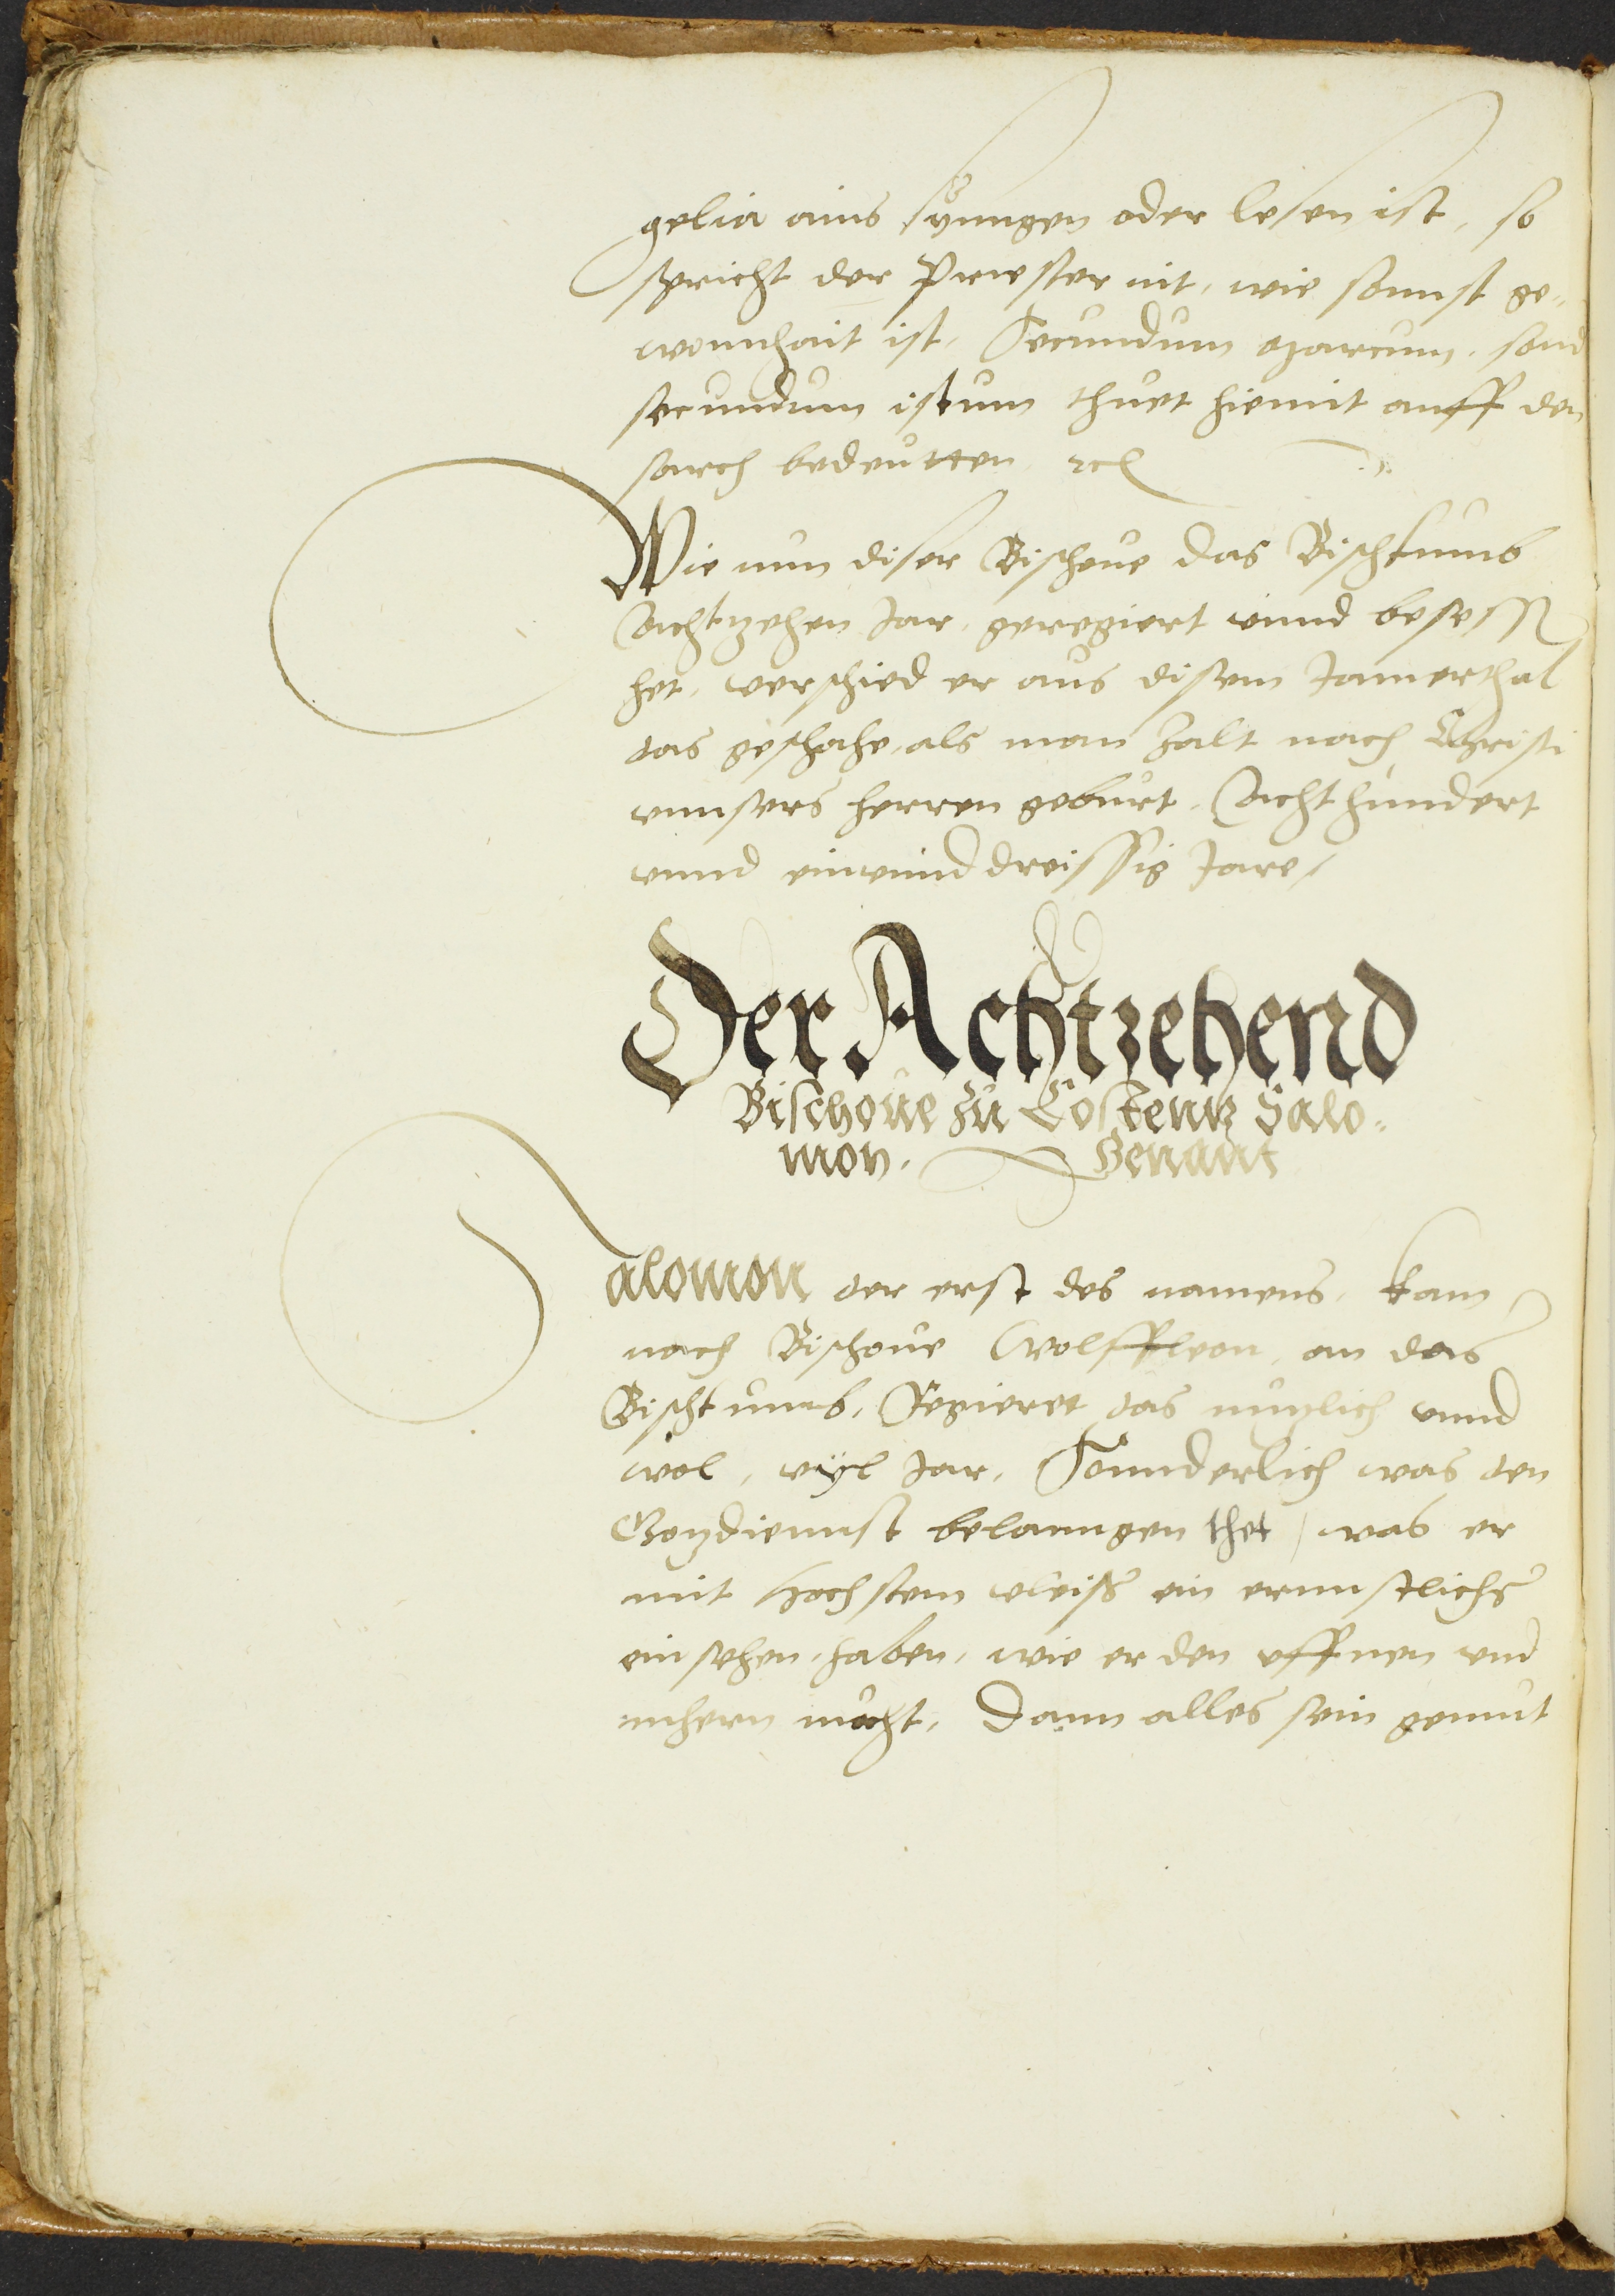 gelia ains synngen oder lesen ist, so
spricht der Priester nit, wie sonnst ge-
wonnhait ist, Secundum Marcum, sond
secundum istum thuet hiemit auff den
sarch bedeutten, ꝛc
Wie nun diser Bischoue das Bischtumb
Achtzehen Jar, geregiert vnnd besessen
het, verschied er aus disem Jamerthal
das geschahe, als man zalt nach Christi
vnnsers herren geburt, Achthundert
vnnd einvnnddreissig Jare/
Der Achtzehend
Bischoue zu Costentz Salo-
mon. Genant
Salomon der erst des namens, kam
nach Bischoue Wolffleon, an das
Bischtumb, Regieret das nutzlich vnnd
wol, vyl Jar, Sonnderlich was den
Gotzdiennst belanngen thet, was er
mit hochstem vleiss ein ernnstlichs
einsehen, haben, wie er den vffnen vnd
mehern mocht, Dann alles sein gemut